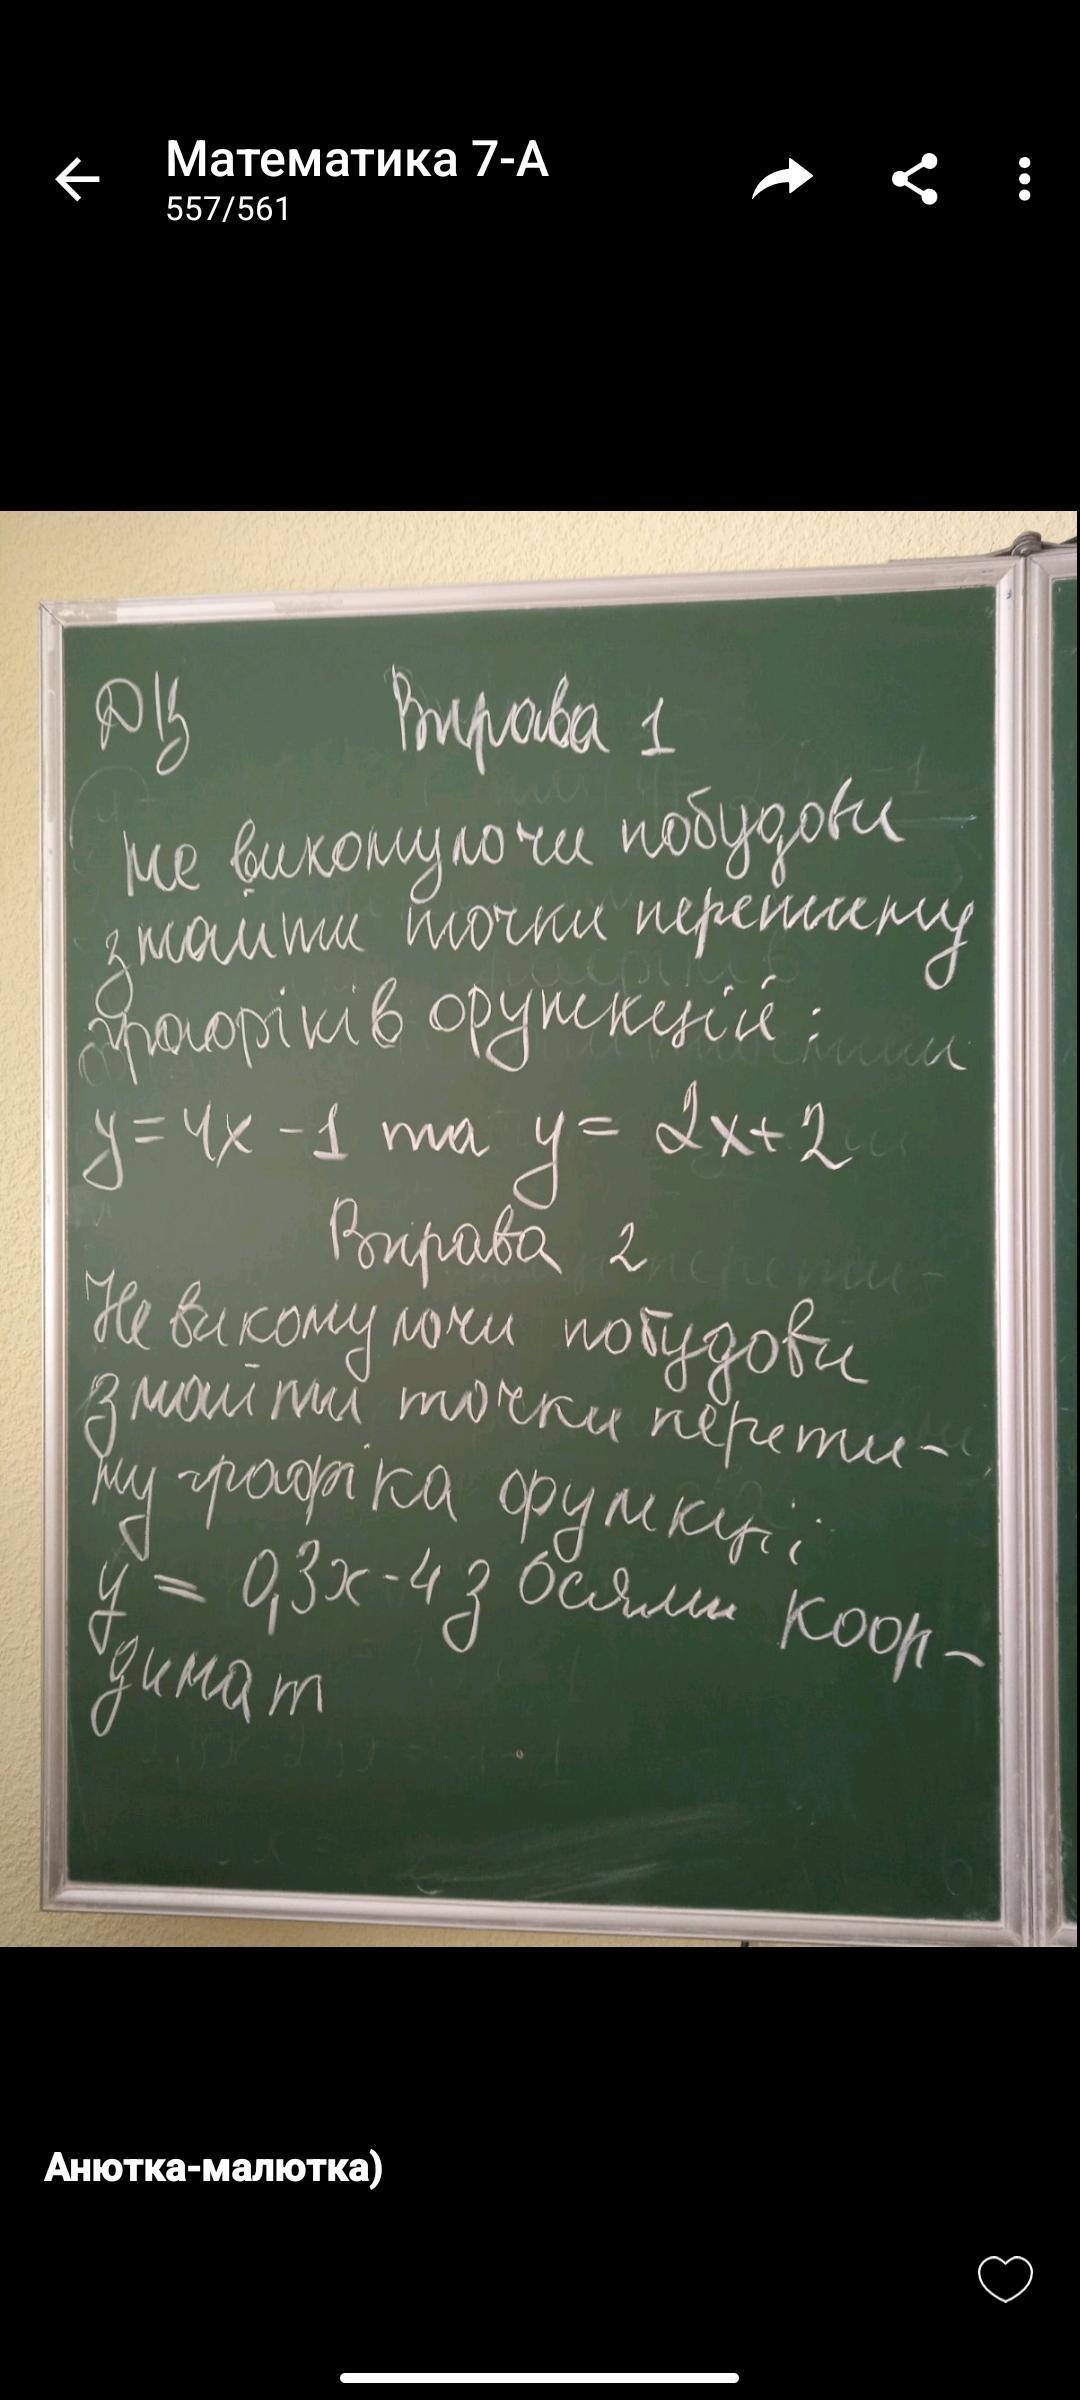 Математика 7-А
557/561
Д/З Вправа 1
Не виконуючи побудови
знайти точки перетину
графіків функцій:
y=4x-1 та y= 2x+2
Вправа 2
Не виконуючи побудови
знайти точки перети-
ну графіка функції
y = 0,3x-4 з осями коор-
динат
Анютка-малютка)